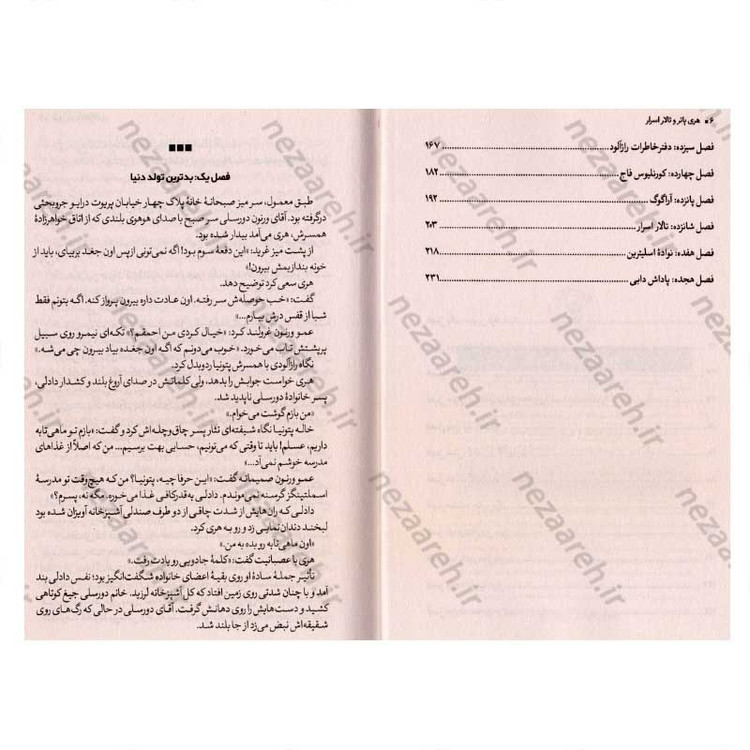 ۶ ■ هری پاتر و تالار اسرار
فصل سیزده: دفتر خاطرات رازآلود ۱۶۷
فصل چهارده: کورنلیوس فاج ۱۸۲
فصل پانزده: آراگوگ ۱۹۲
فصل شانزده: تالار اسرار ۲۰۳
فصل هفده: نوادهٔ اسلیترین ۲۱۸
فصل هجده: پاداش دابی ۲۳۱
■■■
فصل یک: بدترین تولد دنیا
طبق معمول، سر میز صبحانهٔ خانهٔ پلاک چهار خیابان پریوت درایو جروبحثی
درگرفته بود. آقای ورنون دورسلی سر صبح با صدای هوهوی بلندی که از اتاق خواهرزادهٔ
همسرش، هری می‌آمد بیدار شده بود.
از پشت میز غرید: «این دفعهٔ سوم بود! اگه نمی‌تونی ازپس اون جغد بربیای، باید از
خونه بندازیمش بیرون!»
هری سعی کرد توضیح دهد.
گفت: «خب حوصله‌ش سر رفته. اون عادت داره بیرون پرواز کنه. اگه بتونم فقط
شبا از قفس درش بیارم...»
عمو ورنون غرولند کرد: «خیال کردی من احمقم؟ تکه‌ای نیمرو روی سبیل
پرپشتش تاب می‌خورد. «خوب می‌دونم که اگه اون جغده بیاد بیرون چی می‌شه.»
نگاه رازآلودی با همسرش پتونیا ردوبدل کرد.
هری خواست جوابش را بدهد، ولی کلماتش در صدای آروغ بلند و کشدار دادلی،
پسر خانوادهٔ دورسلی ناپدید شد.
«من بازم گوشت می‌خوام.»
خاله پتونیا نگاه شیفته‌ای نثار پسر چاق‌وچله‌اش کرد و گفت: «بازم تو ماهی‌تابه
داریم، عسلم! باید تا وقتی که می‌تونیم، حسابی بهت برسیم... من که اصلاً از غذاهای
مدرسه خوشم نمی‌آد...»
عمو ورنون صمیمانه گفت: «این حرفا چیه، پتونیا؟ من که هیچ‌وقت تو مدرسهٔ
اسملتینگز گرسنه نمی‌موندم. دادلی به‌قدرکافی غذا می‌خوره. مگه نه، پسرم؟»
دادلی که ران‌هایش از شدت چاقی از دو طرف صندلی آشپزخانه آویزان شده بود
لبخند دندان‌نمایی زد و رو به هری کرد.
«اون ماهی‌تابه رو بده به من.»
هری با عصبانیت گفت: «کلمهٔ جادویی رو یادت رفت.»
تأثیر جملهٔ سادهٔ او روی بقیهٔ اعضای خانواده شگفت‌انگیز بود؛ نفس دادلی بند
آمد و با چنان شدتی روی زمین افتاد که کل آشپزخانه لرزید. خانم دورسلی جیغ کوتاهی
کشید و دست‌هایش را روی دهانش گرفت. آقای دورسلی در حالی که رگ‌های روی
شقیقه‌اش نبض می‌زد از جا بلند شد.
nezaareh.ir
nezaareh.ir
nezaareh.ir
nezaareh.ir
nezaareh.ir
nezaareh.ir
nezaareh.ir
nezaareh.ir